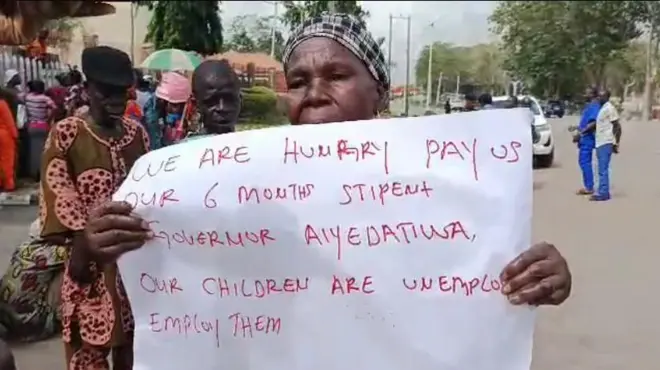 WE ARE HUNGRY PAY US
OUR 6 MONTHS STIPENT
GOVERNOR AIYEDATIWA,
OUR CHILDREN ARE UNEMPLO
EMPLOY THEM